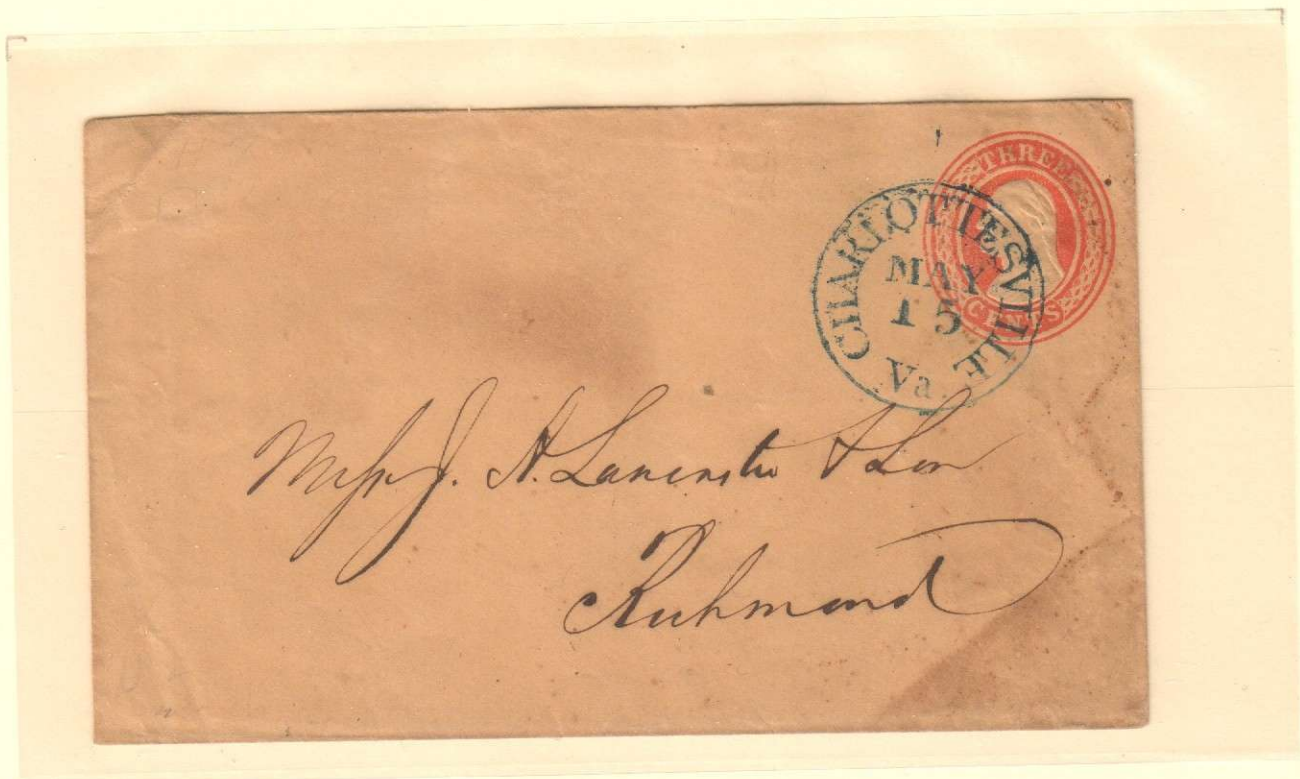 THREE
CENTS
CHARLOTTESVILLE
MAY
15
Va.
Messrs J. A. Lancaster & Son
Richmond